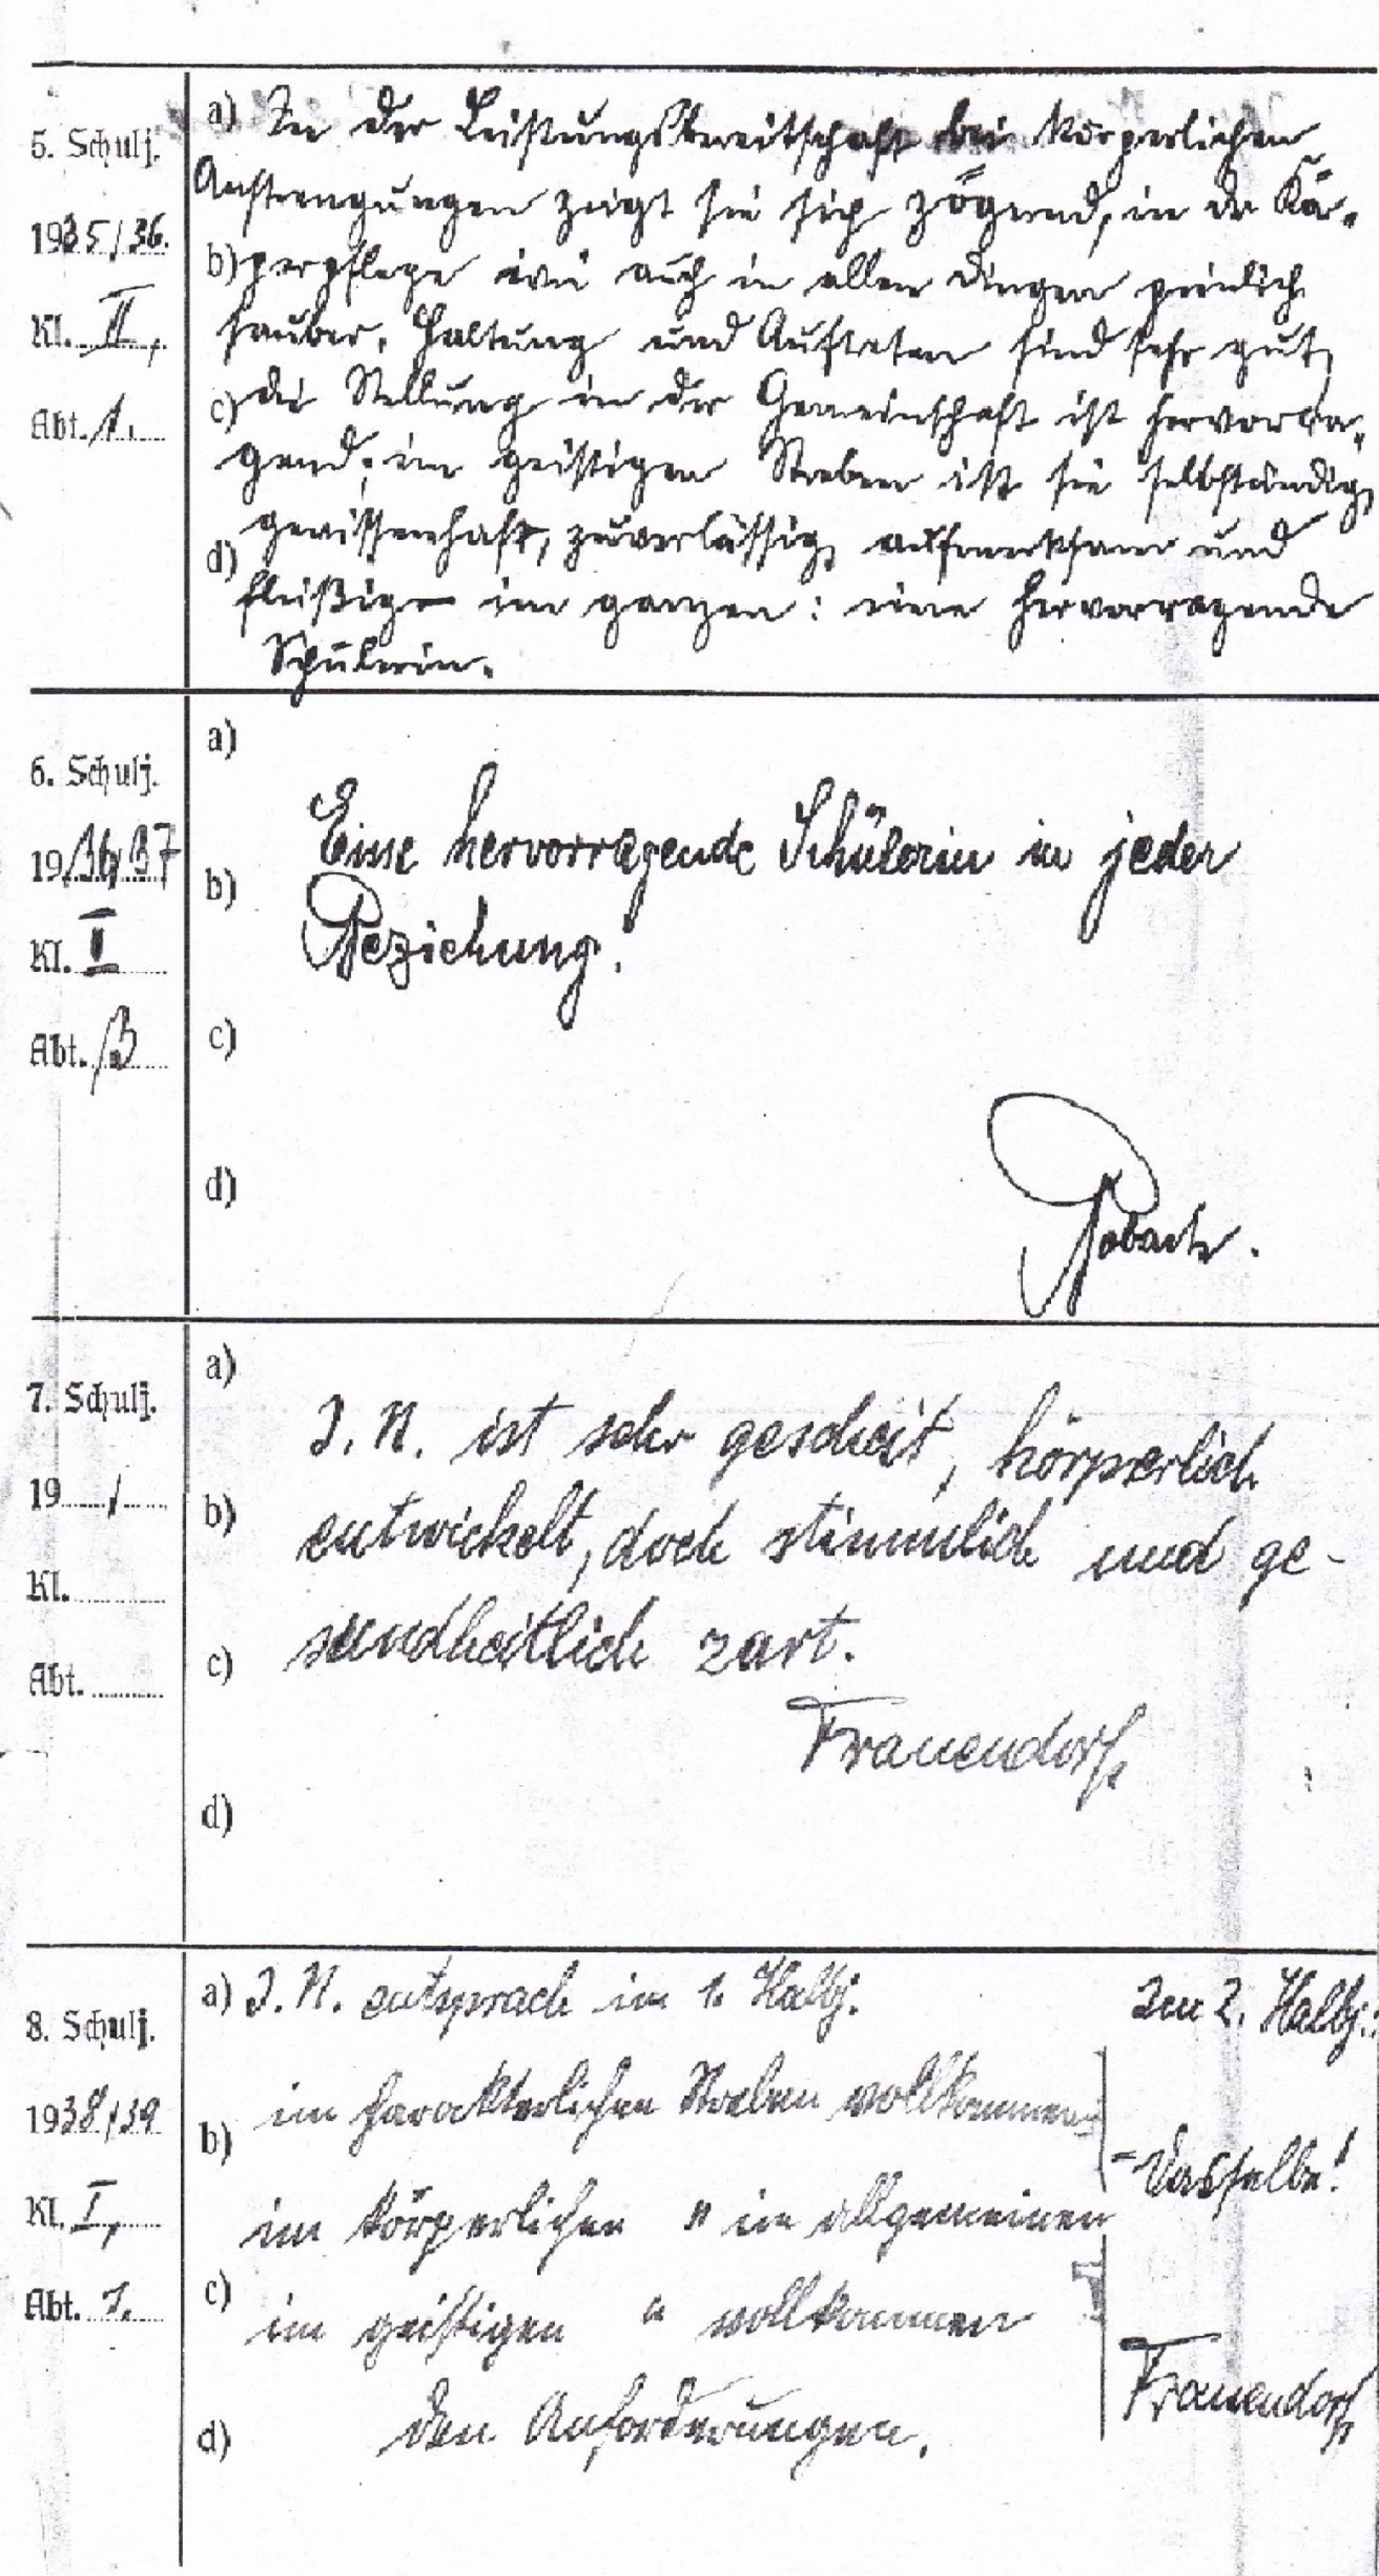 5. Schulj.
1935/36.
Kl. II,
Abt. 1.
a) In der Leistungsbereitschaft bei körperlichen
Anstrengungen zeigt sie sich zögernd, in der Kör-
b) perpflege wie auch in allen Dingen peinlich
sauber. Haltung und Auftreten sind sehr gut,
c) die Stellung in der Gemeinschaft ist hervorra-
gend; im geistigen Streben ist sie selbständig,
gewissenhaft, zuverlässig, aufmerksam und
d)
fleißig – im ganzen: eine hervorragende
Schülerin.
6. Schulj.
1936/37
Kl. I
Abt. B
a)
Eine hervorragende Schülerin in jeder
b)
Beziehung!
c)
d)
7. Schulj.
19 /
Kl.
Abt.
a)
I. N. ist sehr gescheit, körperlich
b) entwickelt, doch stimmlich und ge-
c) sundheitlich zart.
Frauendorf
d)
8. Schulj.
1938/39
Kl. I,
Abt. 1.
a) I. N. entsprach im 1. Halbj. Im 2. Halbj.:
im charakterlichen Streben vollkommen
b) Dasselbe!
im körperlichen " im allgemeinen
c) im geistigen " vollkommen
Frauendorf
d) den Anforderungen.